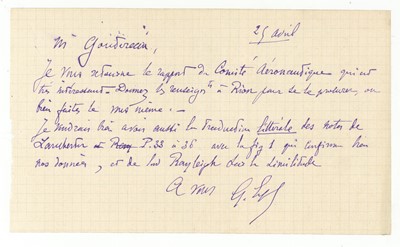 25 avril
Mr
Je vous retourne le rapport du Comité Aéronautique qui est
très intéressant - Donnez les renseigts à Rivoz pour se le procurer, ou
bien faites le moi même. -
Je voudrais bien avoir aussi la traduction littérale des notes de
Lanchester P. 33 à 36 avec la fig 1 qui confirme bien
nos données, et de Lord Rayleigh sur la Similitude
A vous G.